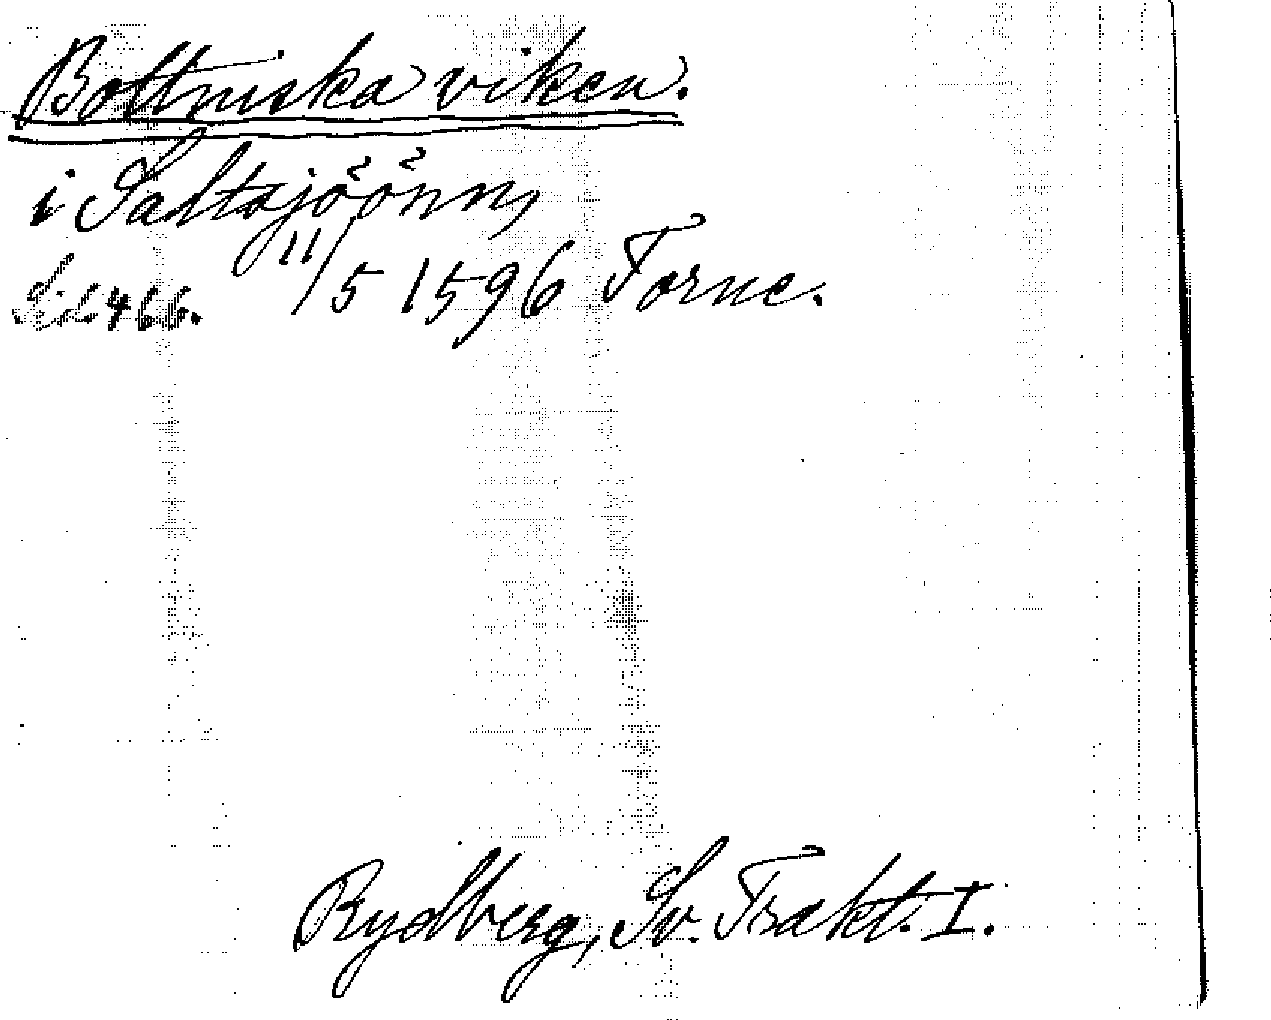 Bottniska viken.
i Saltsjöönn,
11/5 1596 Torne.
Sid 466.
Rydberg, Sv. Trakt. I.